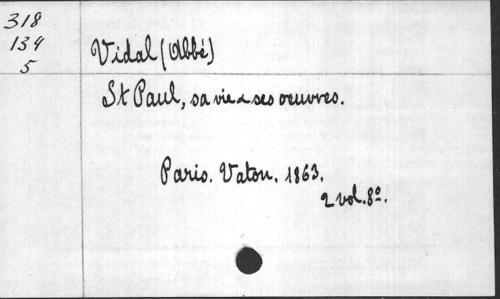 318
134
5
Vidal (Abbé)
St Paul, sa vie & ses oeuvres.
Paris. Vaton. 1863.
2 vol. 8º.